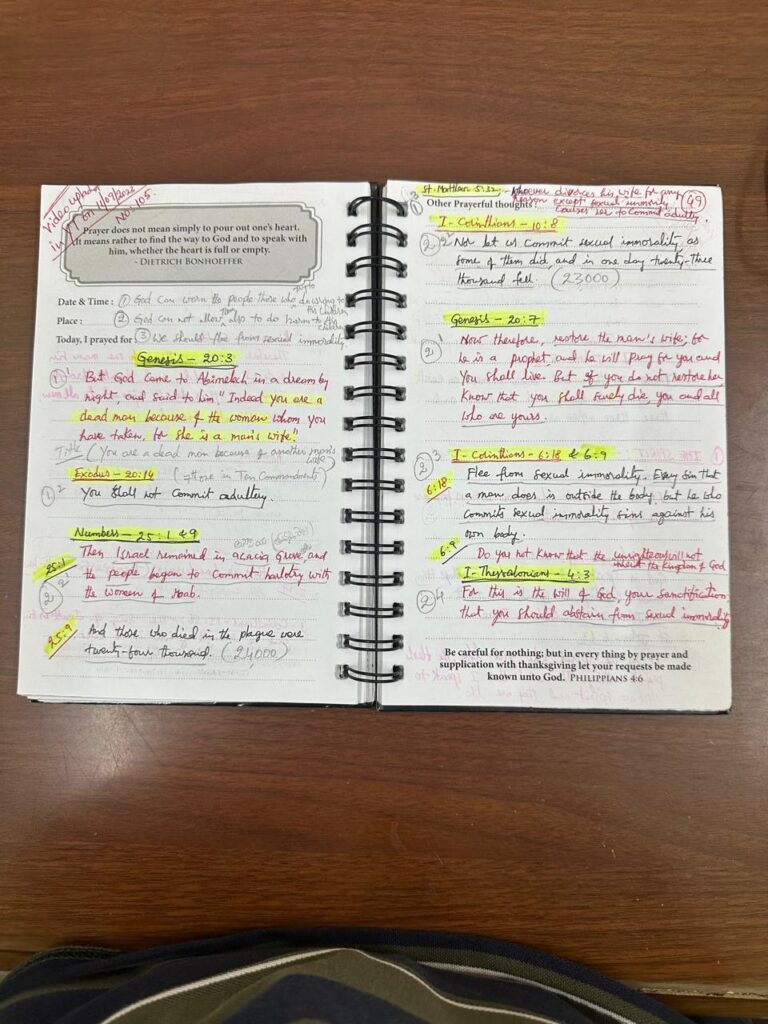 Video upload
in YT on 1/09/202
No: 105.
Prayer does not mean simply to pour out one's heart.
It means rather to find the way to God and to speak with
him, whether the heart is full or empty.
- DIETRICH BONHOEFFER
Date & Time : ① God can warn the people those who doing to
His children
Place : ② God can not allow also to do harm to His
children
Today, I prayed for ③ We should flee from sexual immorality
Genesis - 20:3
① 1 But God came to Abimelech in a dream by
night, and said to him, "Indeed you are a
dead man because of the woman whom you
have taken, for she is a man's wife."
Title (You are a dead man because of another man's
wife)
Exodus - 20:14 (in Ten Commandments)
① 2 You shall not commit adultery.
Numbers - 25:1 & 9
25:1 Then Israel remained in acacia Grove, and
② 2 the people began to commit harlotry with
the women of Moab.
25:9 And those who died in the plague were
twenty-four thousand. (24000)
St. Matthew 5:32 - Whoever divorces his wife for any
reason except sexual immorality
causes her to commit adultery.
49
① 3 Other Prayerful thoughts :
I - Corinthians - 10:8
② 2 Nor let us commit sexual immorality, as
some of them did, and in one day twenty-three
thousand fell. (23000)
Genesis - 20:7
② 1 Now therefore, restore the man's wife; for
he is a prophet, and he will pray for you and
you shall live. But if you do not restore her
Know that you shall surely die, you and all
who are yours.
I - Corinthians - 6:18 & 6:9
② 3 Flee from sexual immorality. Every sin that
6:18 a man does is outside the body, but he who
commits sexual immorality sins against his
own body.
6:9 Do you not Know that the unrighteous will not
inherit the Kingdom of God
I - Thessalonians - 4:3
② 4 For this is the will of God, your sanctification
that you should abstain from sexual immorality
Be careful for nothing; but in every thing by prayer and
supplication with thanksgiving let your requests be made
known unto God. PHILIPPIANS 4:6